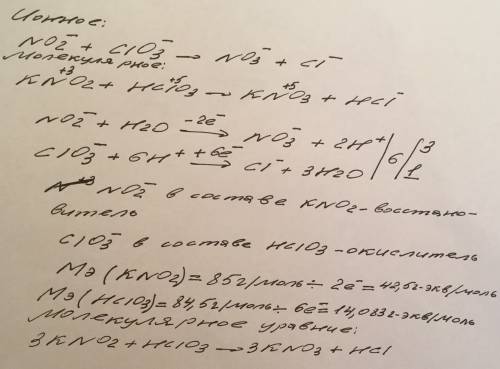 Ионное:
NO2⁻ + ClO3⁻ → NO3⁻ + Cl⁻
Молекулярное:
+3 +5 +5
KNO2 + HClO3 → KNO3 + HCl
NO2⁻ + H2O -2e⁻→ NO3⁻ + 2H⁺ | 6 | 3
ClO3⁻ + 6H⁺ +6e⁻→ Cl⁻ + 3H2O | 1
NO2⁻ в составе KNO2-восстано-
витель
ClO3⁻ в составе HClO3-окислитель
Мэ(KNO2)=85г/моль÷2e⁻=42,5г-экв/моль
Мэ(HClO3)=84,5г/моль÷6e⁻=14,083г-экв/моль
Молекулярное уравние:
3KNO2+HClO3→3KNO3+HCl